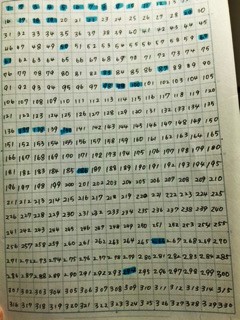 20 22 23 24 25 26 27 28 30
31 32 33 34 35 36 37 38 39 40 41 42 43 44 45
46 47 48 49 51 52 53 54 55 56 57 58 59
62 63 64 65 66 67 68 69 70 71 72 73 74 75
76 77 78 79 80 81 82 84 85 86 88 89 90
91 92 93 94 101 102 103 104 105
106 107 108 109 110 111 112 113 114 115 116 117 118 119 120
121 122 123 124 125 126 127 128 129 130 131 132 133 134 135
136 139 141 142 143 144 145 146 147 148 149 150
151 152 153 154 155 156 157 158 159 160 161 162 163 164 165
166 167 168 169 170 171 172 173 174 175 176 177 178 179 180
181 182 183 184 185 187 188 189 190 191 192 193 194 195
196 197 198 199 200 201 202 203 204 205 206 207 208 209 210
211 212 213 214 215 216 217 218 219 220 221 222 223 224 225
226 227 228 229 230 231 232 233 234 235 236 237 238 239 240
241 242 243 244 245 246 247 248 249 250 251 252 253 254 255
256 257 258 259 260 261 262 263 264 267 268 269 270
271 272 273 274 275 276 277 278 279 280 281 282 283 284 285
286 287 288 289 290 291 292 293 295 296 297 298 299 300
301 302 303 304 305 306 307 308 309 310 311 312 313 314 315
316 317 318 319 320 321 322 323 324 325 326 327 328 329 330